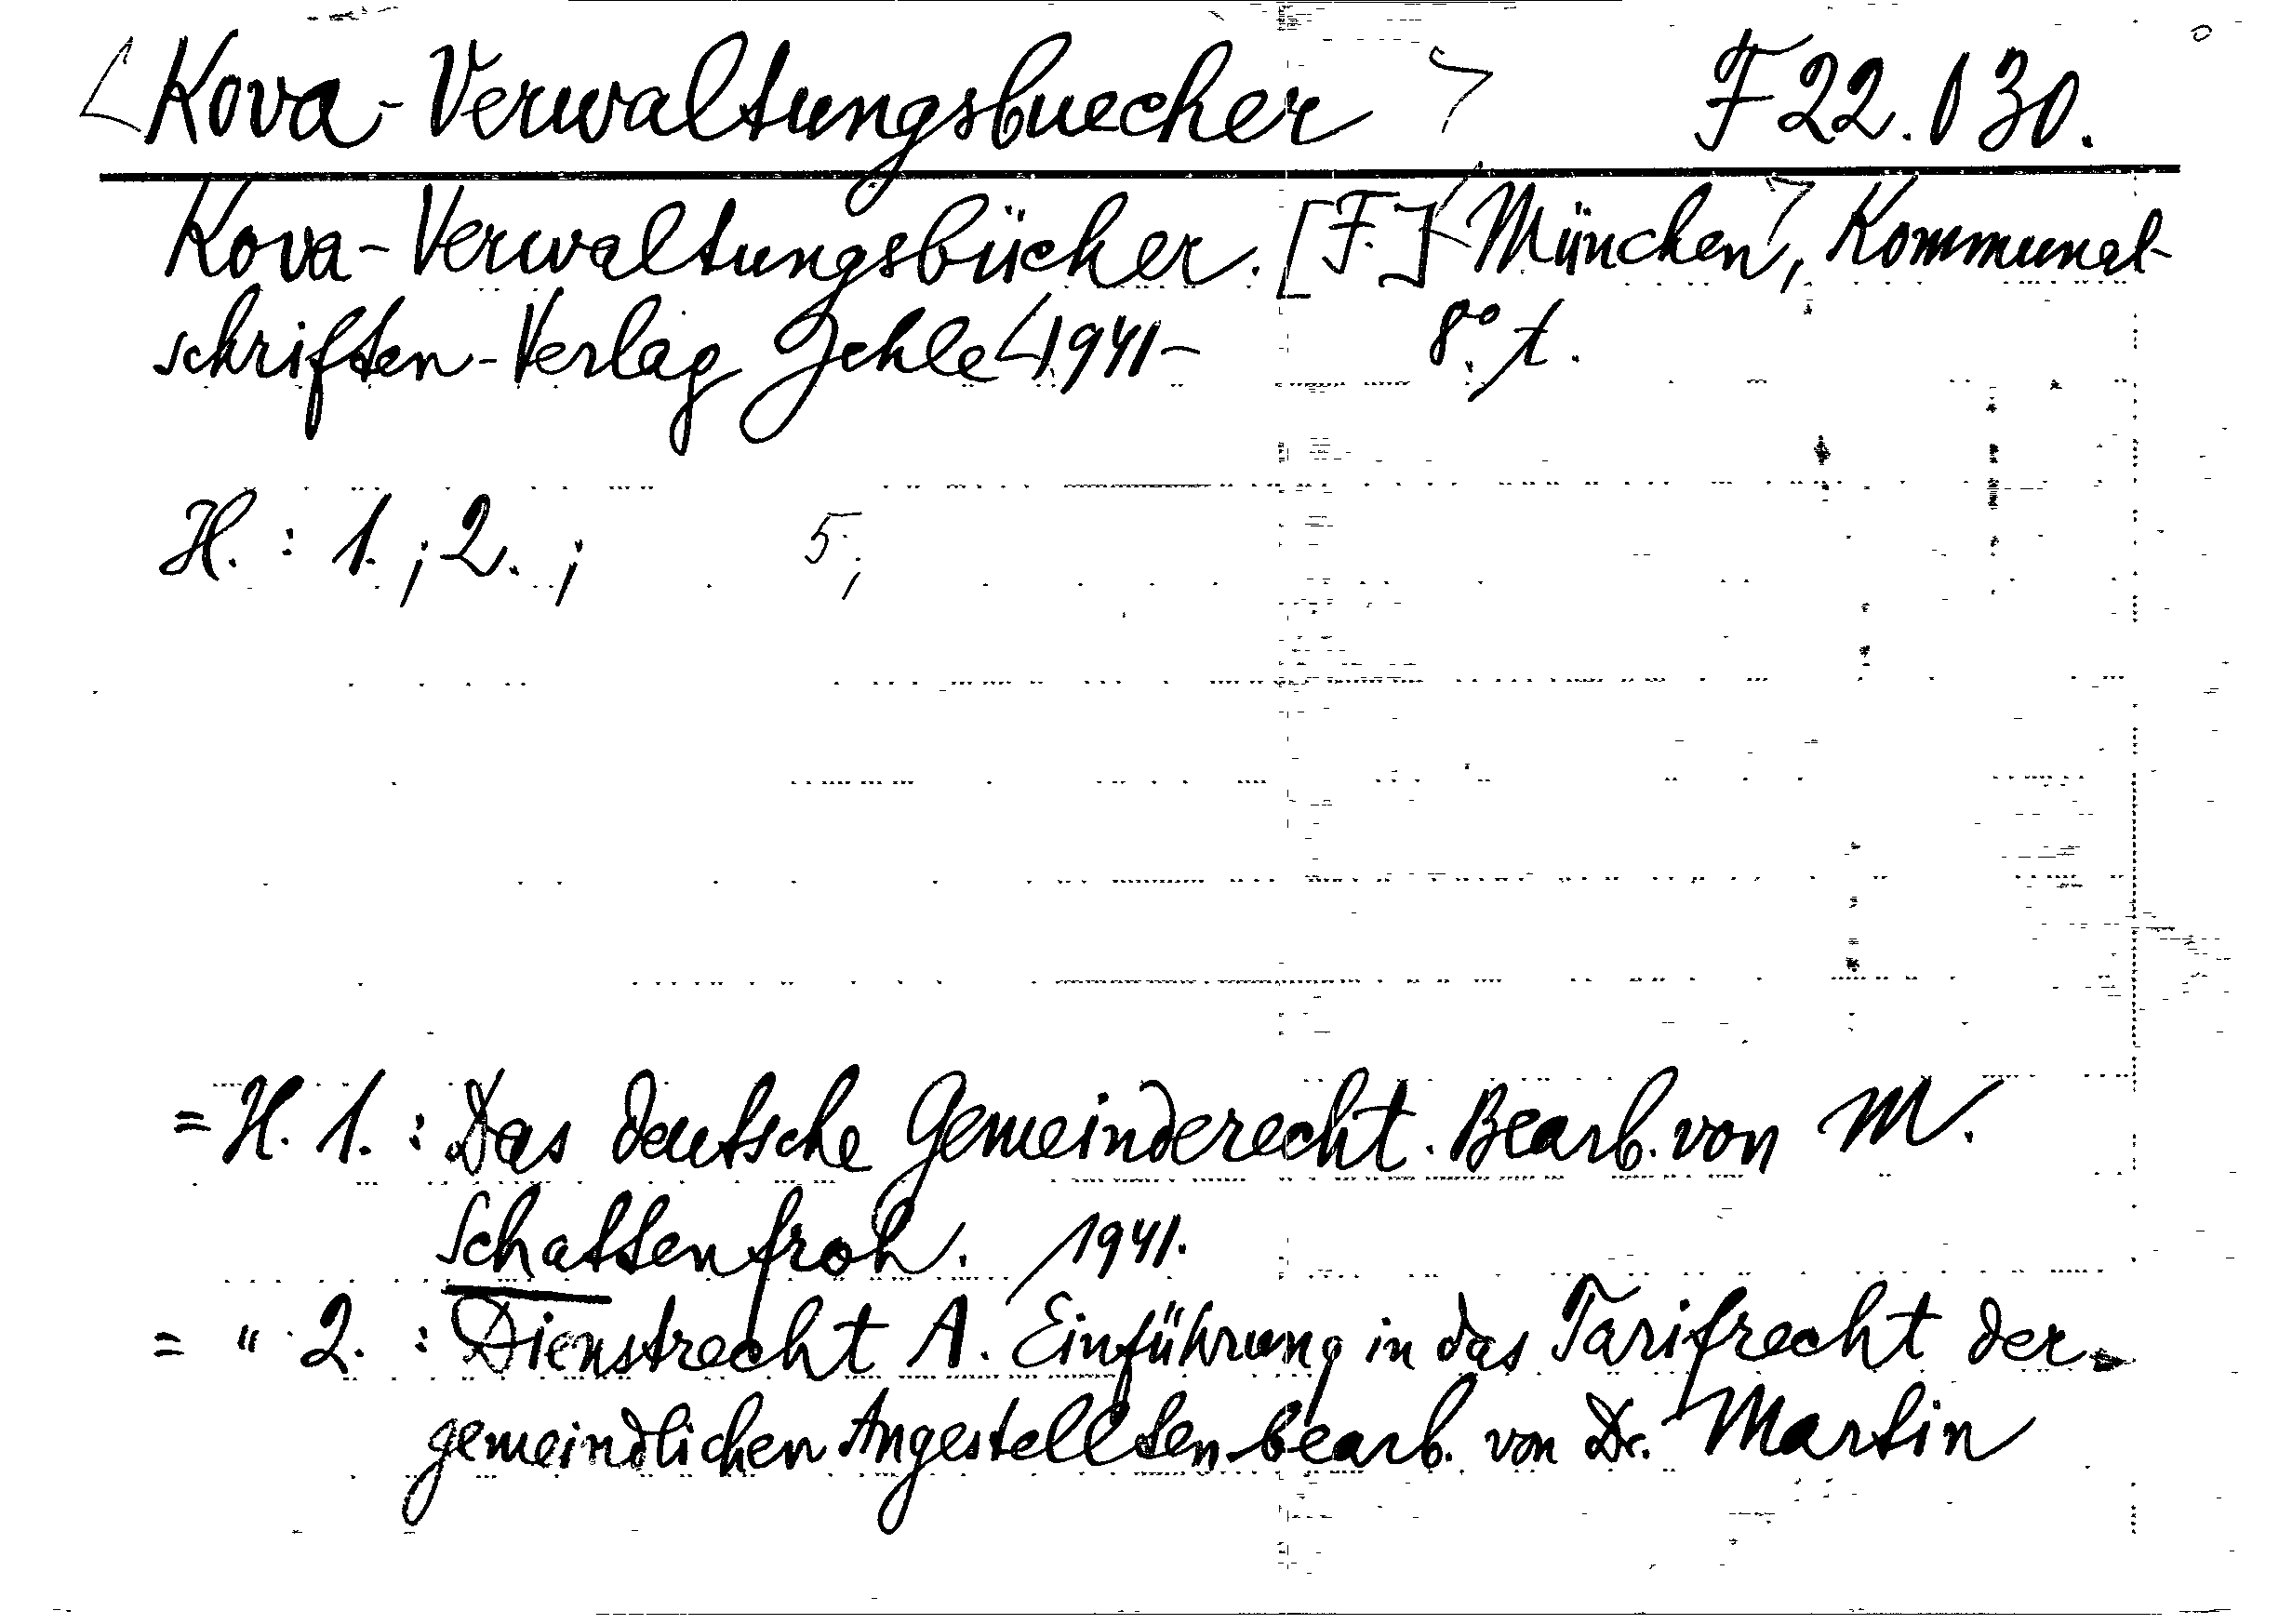 <Kova-Verwaltungsbuecher> F 22.030.
Kova-Verwaltungsbücher. [F.] <München>, Kommunal-
schriften-Verlag Jehle <1941- 8°. t.
H. : 1. ; 2. ; 5 ;
= H. 1. : Das deutsche Gemeinderecht. Bearb. von M.
Schattenfroh. 1941.
= " 2. : Dienstrecht A. Einführung in das Tarifrecht der
gemeindlichen Angestellten bearb. von Dr. Martin